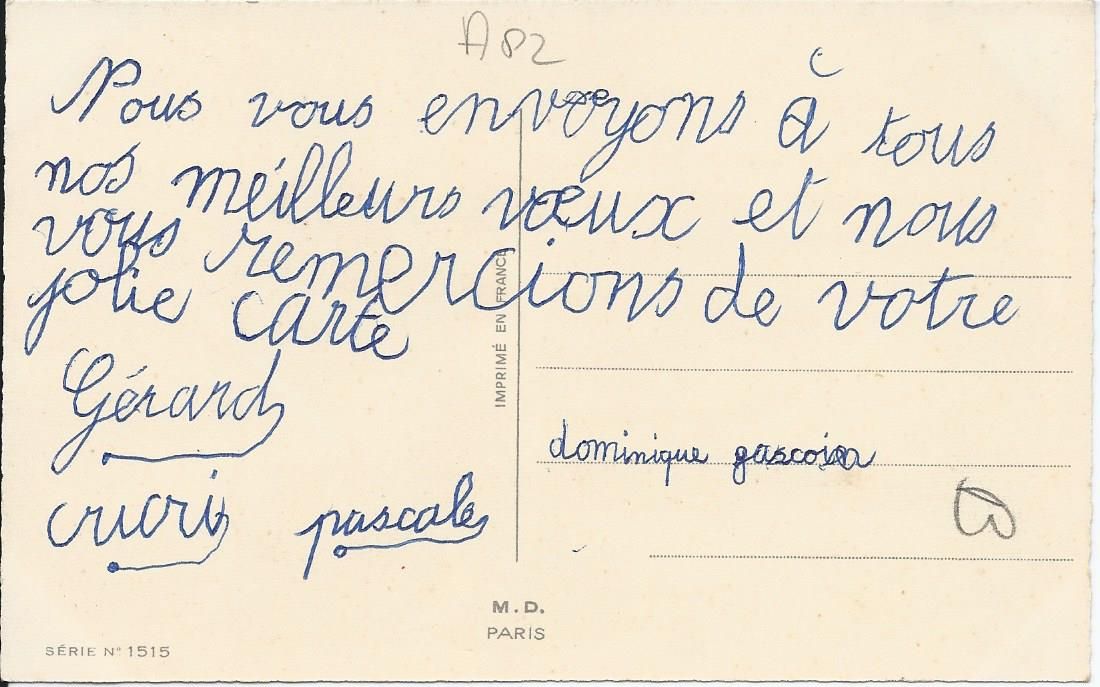 A82
Nous vous envoyons à tous
nos meilleurs vœux et nous
vous remercions de votre
jolie carte
Gérard
cricri pascale
dominique
IMPRIMÉ EN FRANCE
M.D.
PARIS
SÉRIE N° 1515